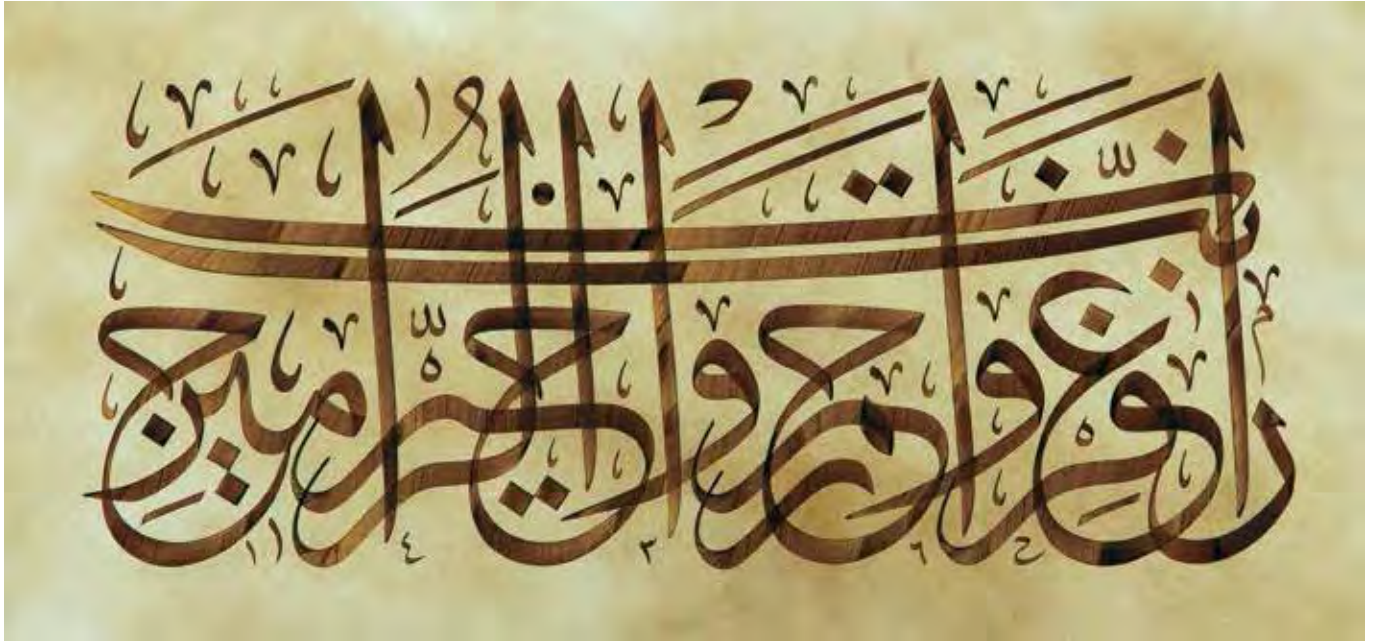 رب اغفر وارحم وأنت خير الراحمين
١٤٣٦